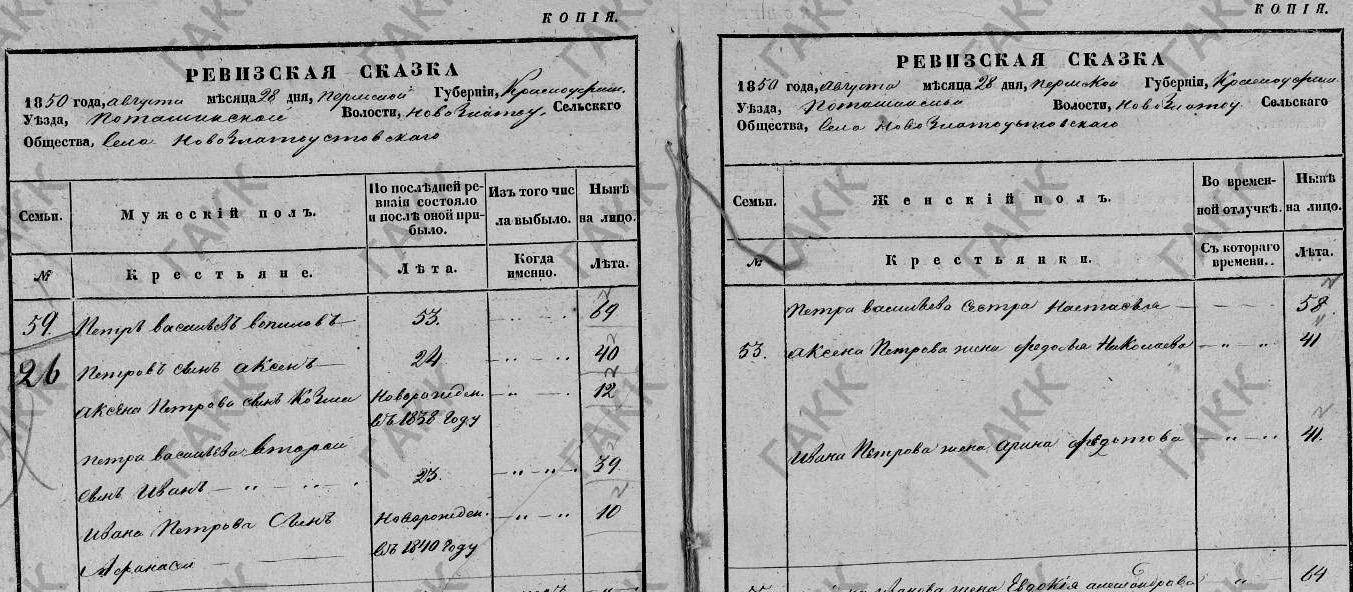 КОПІЯ.
РЕВИЗСКАЯ СКАЗКА
1850 года, августа мѣсяца 28 дня, Пермской Губерніи, Красноуфим.
Уѣзда, Поташинской Волости, НовоЗлатоу. Сельскаго
Общества, Села НовоЗлатоустовскаго
Семьи.
Мужескій полъ.
По послѣдней ре-
визіи состояло
и послѣ оной при-
было.
Изъ того чис
ла выбыло.
Нынѣ
на лицо.
№
Крестьяне.
Лѣта.
Когда
именно.
Лѣта.
59. Петръ васильевъ 53. 69
26
Петровъ сынъ аксенъ 24 40
аксена Петрова сынъ Козма Новорожден. 12
въ 1838 году
Петра васильева второй
сынъ Иванъ 23. 39
Ивана Петрова Сынъ Новорожден. 10
въ 1840 году
Афанасы
КОПІЯ.
РЕВИЗСКАЯ СКАЗКА
1850 года, августа мѣсяца 28 дня, Пермской Губерніи, Красноуфим.
Уѣзда, Волости, НовоЗлатоу. Сельскаго
Общества, Села НовоЗлатоустовскаго
Семьи.
Женскій полъ.
Во времен-
ной отлучкѣ.
Нынѣ
на лицо.
№
Крестьянки.
Съ котораго
времени.
Лѣта.
Петра васильева Сестра Настасья 58.
53. аксена Петрова жена федосья Николаева 41
Ивана Петрова жена Арина федотова 41.
Иванова жена Евдокія 64
ГАКК